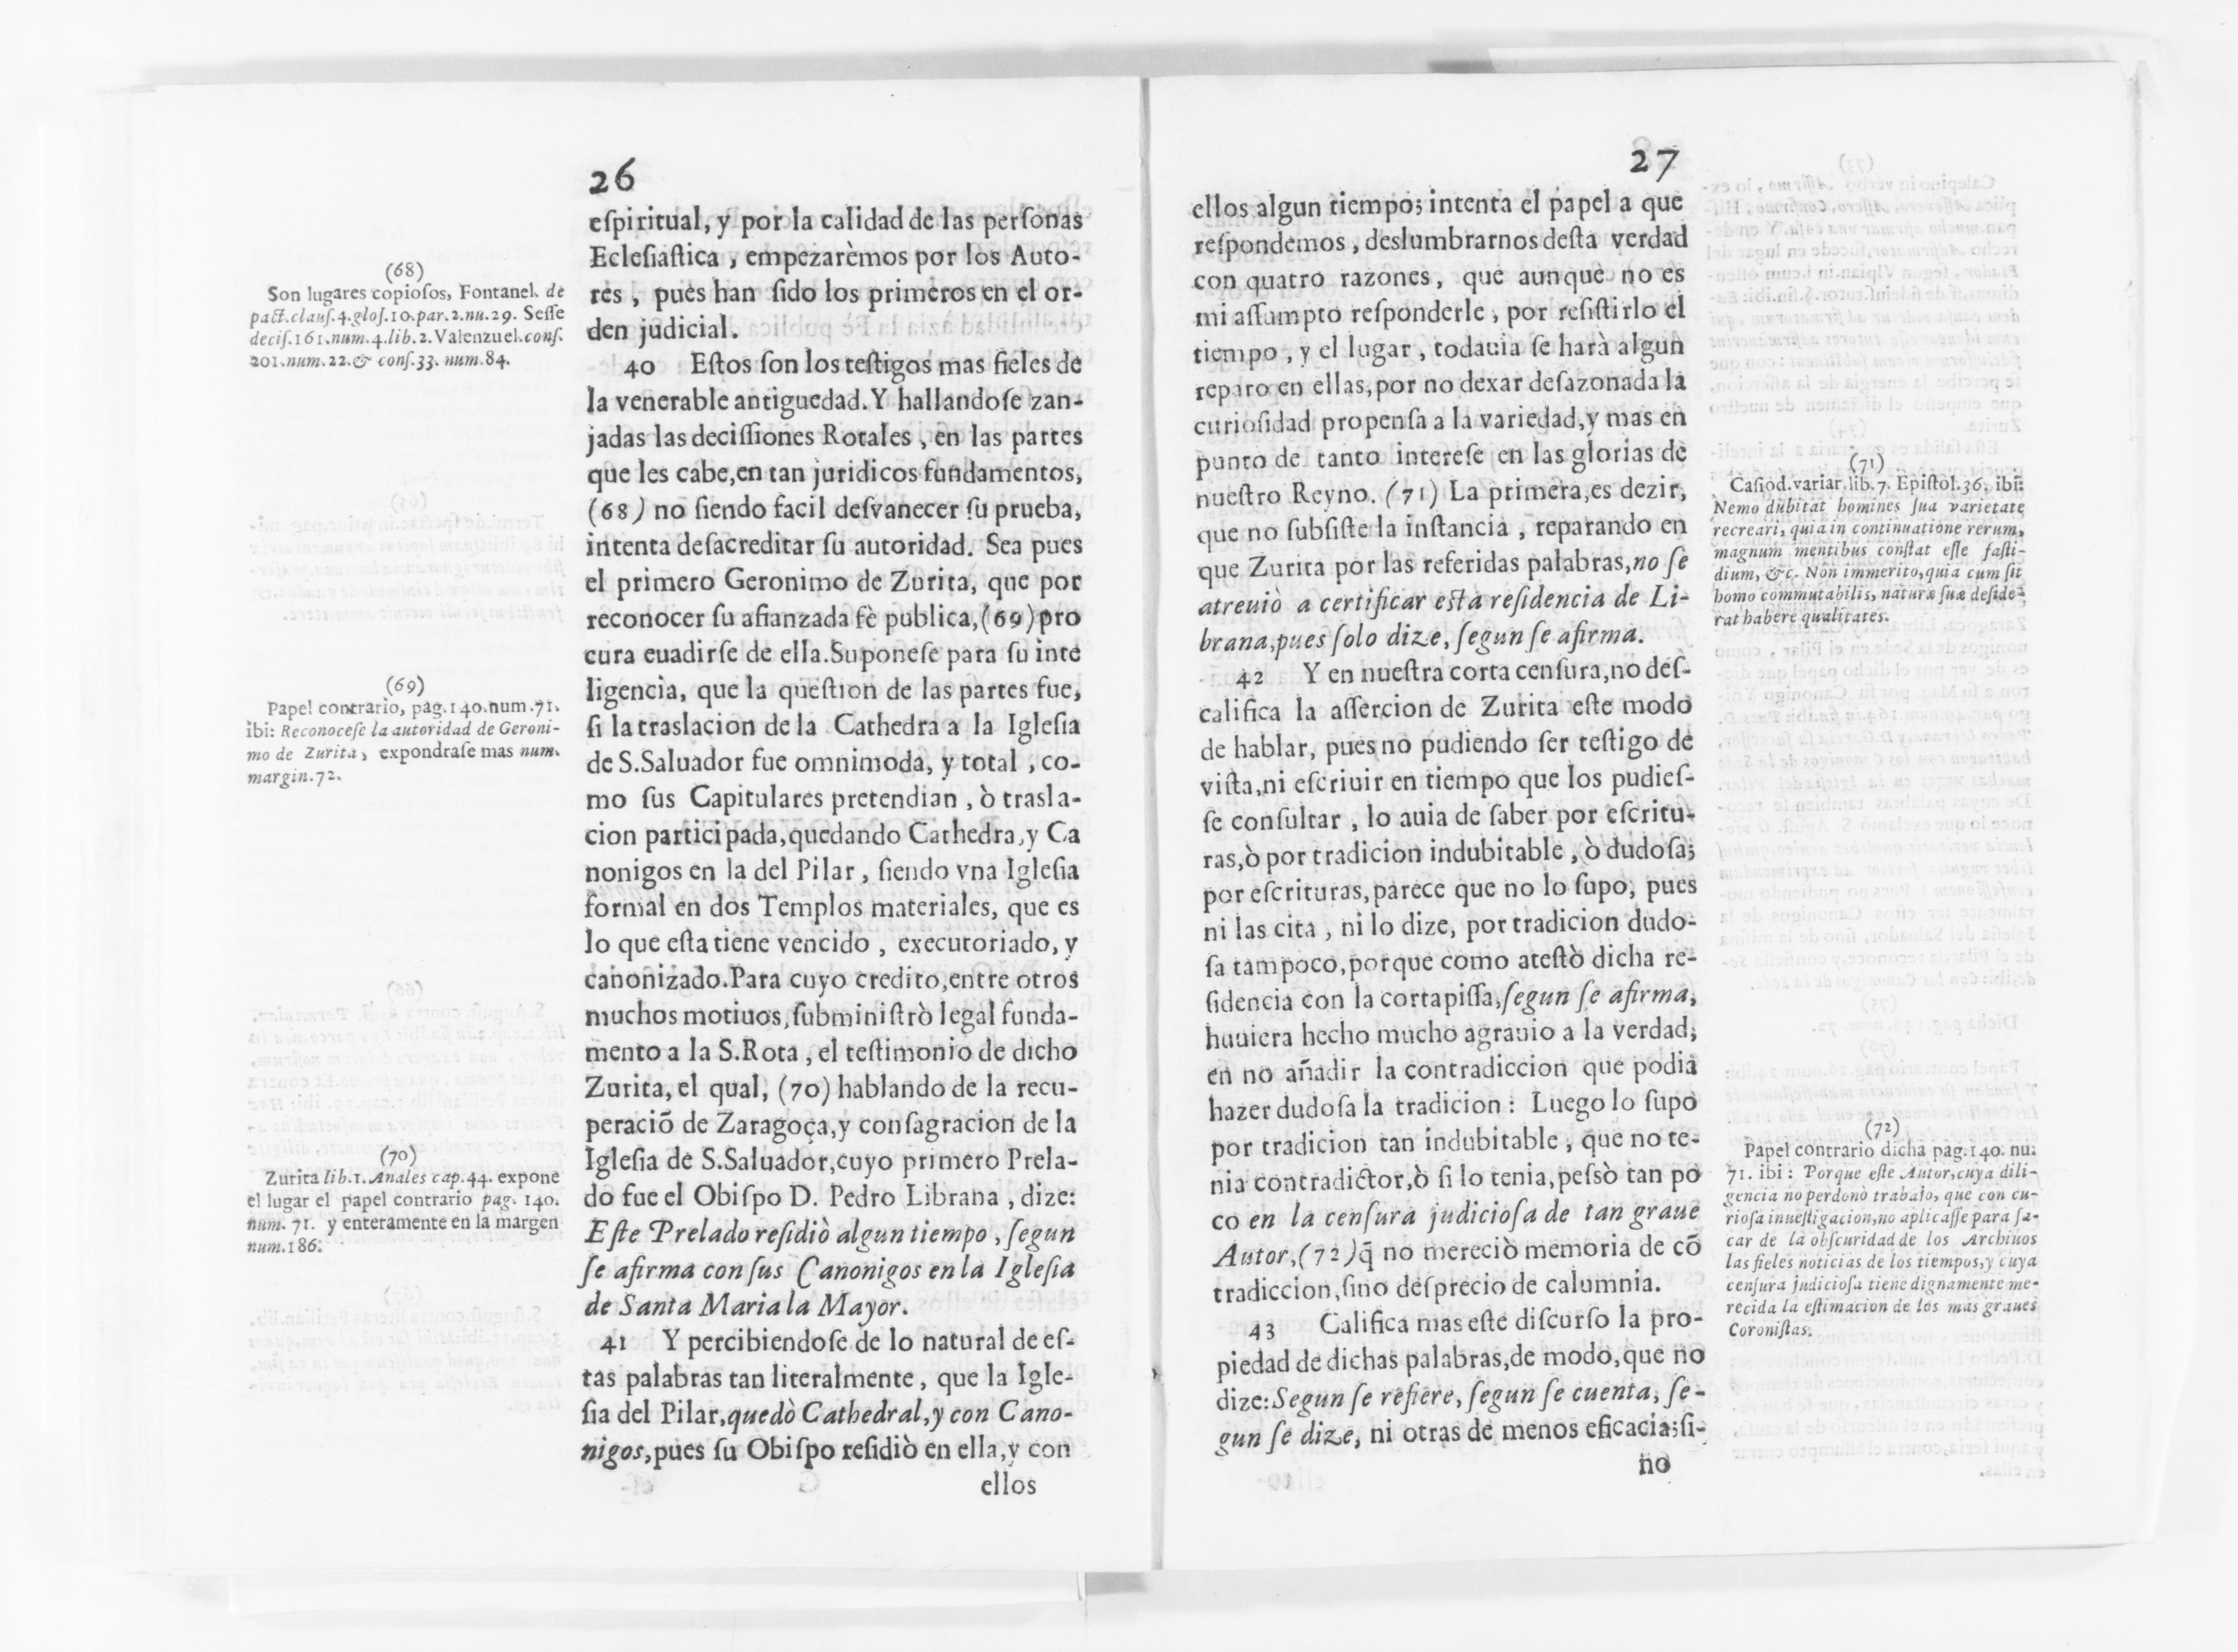 26
eſpiritual, y por la calidad de las perſonas
Ecleſiaſtica, empezarèmos por los Auto-
res, pues han ſido los primeros en el or-
den judicial.
40 Eſtos ſon los teſtigos mas fieles de
la venerable antiguedad. Y hallandoſe zan-
jadas las deciſſiones Rotales, en las partes
que les cabe, en tan juridicos fundamentos,
(68) no ſiendo facil deſvanecer ſu prueba,
intenta deſacreditar ſu autoridad. Sea pues
el primero Geronimo de Zurita, que por
reconocer ſu afianzada fè publica, (69) pro
cura euadirſe de ella. Suponeſe para ſu inte
ligencia, que la queſtion de las partes fue,
ſi la traslacion de la Cathedra a la Igleſia
de S. Saluador fue omnimoda, y total, co-
mo ſus Capitulares pretendian, ò trasla-
cion participada, quedando Cathedra, y Ca
nonigos en la del Pilar, ſiendo vna Igleſia
formal en dos Templos materiales, que es
lo que eſta tiene vencido, executoriado, y
canonizado. Para cuyo credito, entre otros
muchos motiuos, ſubminiſtrò legal funda-
mento a la S. Rota, el teſtimonio de dicho
Zurita, el qual, (70) hablando de la recu-
peraciõ de Zaragoça, y conſagracion de la
Igleſia de S. Saluador, cuyo primero Prela-
do fue el Obiſpo D. Pedro Librana, dize:
Eſte Prelado reſidiò algun tiempo, ſegun
ſe afirma con ſus Canonigos en la Igleſia
de Santa Maria la Mayor.
41 Y percibiendoſe de lo natural de eſ-
tas palabras tan literalmente, que la Igle-
ſia del Pilar, quedò Cathedral, y con Cano-
nigos, pues ſu Obiſpo reſidiò en ella, y con
ellos
(68)
Son lugares copioſos, Fontanel. de
pact. clauſ. 4. gloſ. 10. par. 2. nu. 29. Seſſe
deciſ. 161. num. 4. lib. 2. Valenzuel. conſ.
201. num. 22. & conſ. 33. num. 84.
(69)
Papel contrario, pag. 140. num. 71.
ibi: Reconoceſe la autoridad de Geroni-
mo de Zurita, expondraſe mas num.
margin. 72.
(70)
Zurita lib. 1. Anales cap. 44. expone
el lugar el papel contrario pag. 140.
num. 71. y enteramente en la margen
num. 186.
27
ellos algun tiempo; intenta el papel a que
reſpondemos, deslumbrarnos deſta verdad
con quatro razones, que aunque no es
mi aſſumpto reſponderle, por reſiſtirlo el
tiempo, y el lugar, todauia ſe harà algun
reparo en ellas, por no dexar deſazonada la
curioſidad propenſa a la variedad, y mas en
punto de tanto intereſe en las glorias de
nueſtro Reyno. (71) La primera, es dezir,
que no ſubſiſte la inſtancia, reparando en
que Zurita por las referidas palabras, no ſe
atreuiò a certificar eſta reſidencia de Li-
brana, pues ſolo dize, ſegun ſe afirma.
42 Y en nueſtra corta cenſura, no deſ-
califica la aſſercion de Zurita eſte modo
de hablar, pues no pudiendo ſer teſtigo de
viſta, ni eſcriuir en tiempo que los pudieſ-
ſe conſultar, lo auia de ſaber por eſcritu-
ras, ò por tradicion indubitable, ò dudoſa;
por eſcrituras, parece que no lo ſupo, pues
ni las cita, ni lo dize, por tradicion dudo-
ſa tampoco, porque como ateſtò dicha re-
ſidencia con la cortapiſſa, ſegun ſe afirma,
huuiera hecho mucho agrauio a la verdad,
en no añadir la contradiccion que podia
hazer dudoſa la tradicion: Luego lo ſupo
por tradicion tan indubitable, que no te-
nia contradictor, ò ſi lo tenia, peſsò tan po
co en la cenſura judicioſa de tan graue
Autor, (72) q̃ no mereciò memoria de cõ
tradiccion, ſino deſprecio de calumnia.
43 Califica mas eſte diſcurſo la pro-
piedad de dichas palabras, de modo, que no
dize: Segun ſe refiere, ſegun ſe cuenta, ſe-
gun ſe dize, ni otras de menos eficacia; ſi-
no
(71)
Caſiod. variar. lib. 7. Epiſtol. 36. ibi:
Nemo dubitat homines ſua varietate
recreari, quia in continuatione rerum,
magnum mentibus conſtat eſſe faſti-
dium, &c. Non immerito, quia cum ſit
homo commutabilis, naturæ ſuæ deſide-
rat habere qualitates.
(72)
Papel contrario dicha pag. 140. nu.
71. ibi: Porque eſte Autor, cuya dili-
gencia no perdonò trabajo, que con cu-
rioſa inueſtigacion, no aplicaſſe para ſa-
car de la obſcuridad de los Archiuos
las fieles noticias de los tiempos, y cuya
cenſura judicioſa tiene dignamente me-
recida la eſtimacion de los mas graues
Coroniſtas.